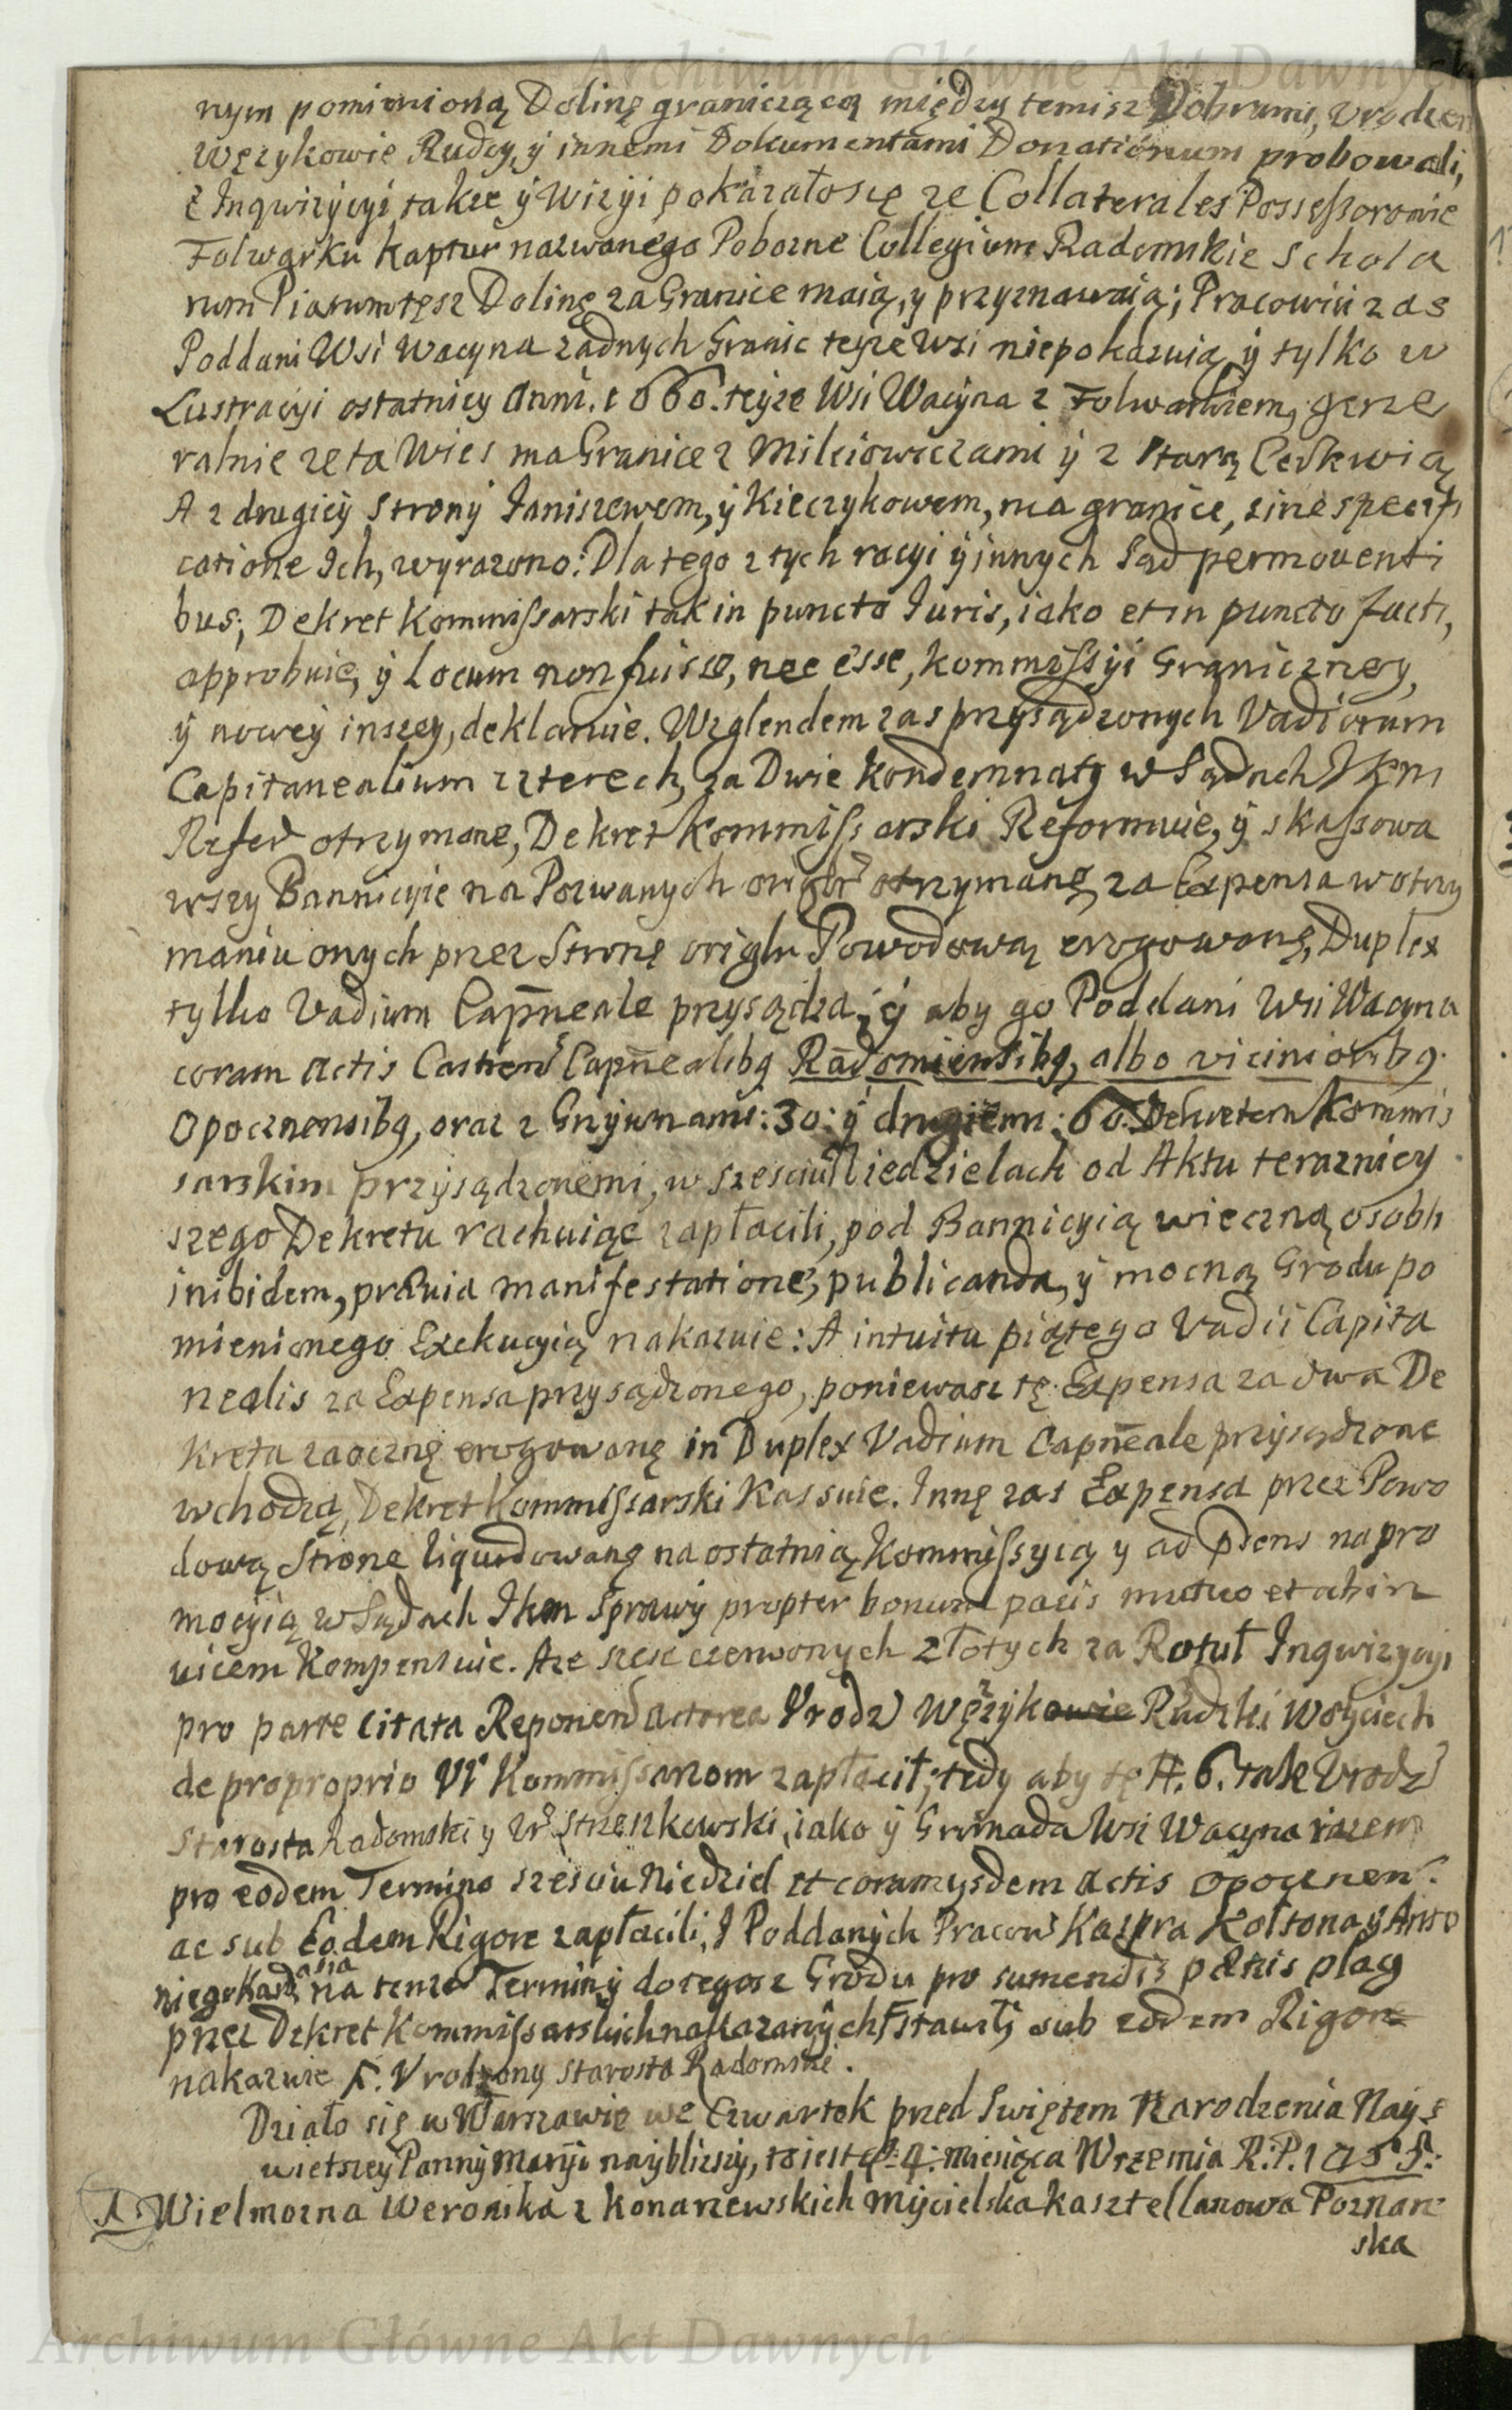 Archiwum Główne Akt Dawnych
nym pomienioną Dolinę graniczącą między temisz Dobrami, Vrodzen
Węzykowie Rudcy, ÿ innemi Dokumentami Donationum probowali,
z Inqwizycyi takze ÿ Wizyi pokazałosię ze Collaterales Possessorowie
Folwarku Kaptur nazwanego Pobozne Collegium Radomskie Schola
rum Piarum tęsz Dolinę za Granice maią, y przyznawaią; Pracowici zas
Poddani Wsi Wacyna zadnych Granic teyze Wsi niepokazuią ÿ tylko w
Lustracyi ostatniey Anni. 1660. teyze Wsi Wacyna z Folwarkiem, gene
ralnie ze ta Wies ma Granice z Milciowiczami ÿ z Starą Cerkwią
A z drugiey Strony Janiszewem, ÿ Kieczykowem, ma granice, sine specifi
catione Ich, wyrazono: Dla tego z tych racyi ÿ innych Sąd permoventi
bus; Dekret Kommissarski tak in puncto Juris, iako et in puncto facti,
approbuie, ÿ Locum non fuisse, nec esse, Kommissyi Graniczney,
ÿ nowey inszey, deklaruie. Wzglendem zas przysądzonych Vadiorum
Capitanealium czterech, za Dwie Kondemnaty w Sądach JKm
Refer otrzymane, Dekret Kommissarski Reformuie, ÿ skassowa
wszy Bannicyie na Pozwanych origlr otrzymanę, za Expensa w otrzy
maniu onych przez Stronę origlr Powodową erogowanę, Duplex
tylko Vadium Capneale przysądza, ÿ aby go Poddani Wsi Wacyna
coram Actis Castren Capnealibq Radomiensibq, albo vicinioribq
Opocznensibq, oraz z Grzywnami: 30: ÿ drugiemi: 60. Dekretem Kommis
sarskim przysądzonemi, w szesciu Niedzielach od Aktu teraznieÿ
szego Dekretu rachuiąc zapłacili, pod Bannicyią wieczną osobli
inibidem, prævia manifestatione, publicanda, ÿ mocną Grodu po
mienionego Exekucyią nakazuie: A intuitu piątego Vadii Capita
nealis za Expensa przysądzonego, poniewasz tę Expensa za dwa De
kreta zaocznę erogowanę in Duplex Vadium Capneale przysądzone
wchodzą, Dekret Kommissarski Kassuie. Innę zas Expensa przez Powo
dową Stronę liquidowanę na ostatnią Kommissyią y ad psens na pro
mocyią w Sądach JKm Sprawy propter bonum pacis mutuo et ab in
vicem Kompensuie. Aze szesc czerwonych złotych za Rotuł Inqwizycyi
pro parte citata Reponen Actorea Vrodz Węzyk Rudzki Woyciech
de proproprio Vr Kommissarzom zapłacił; tedy aby tę #. 6. tak Vrodz
Starosta Radomski y Vr Strzeszkowski, iako ÿ Gromada Wsi Wacyna razem
pro eodem Termino szesciu Niedziel et coram ysdem Actis Opocznen.
ac sub Eodem Rigore zapłacili, I Poddanych Pracow Kaspra Kołtona ÿ Anto
niego Kardasia na tenze Termin ÿ dotegosz Grodu pro sumendis pænis plag
przez Dekret Kommissarskich nakazanych stawił, sub eodem Rigore
nakazuie. Vrodzony Starosta Radomski.
Działo się w Warszawie we Czwartek przed Swiętem Narodzenia Nays
wietszey Panny Maryi nayblizszy, to iest d: 4: miesiąca Wrzesnia R. P. 1755:
1. Wielmozna Weronika z Konarzewskich Mycielska Kasztellanowa Poznan
ska
Archiwum Główne Akt Dawnych